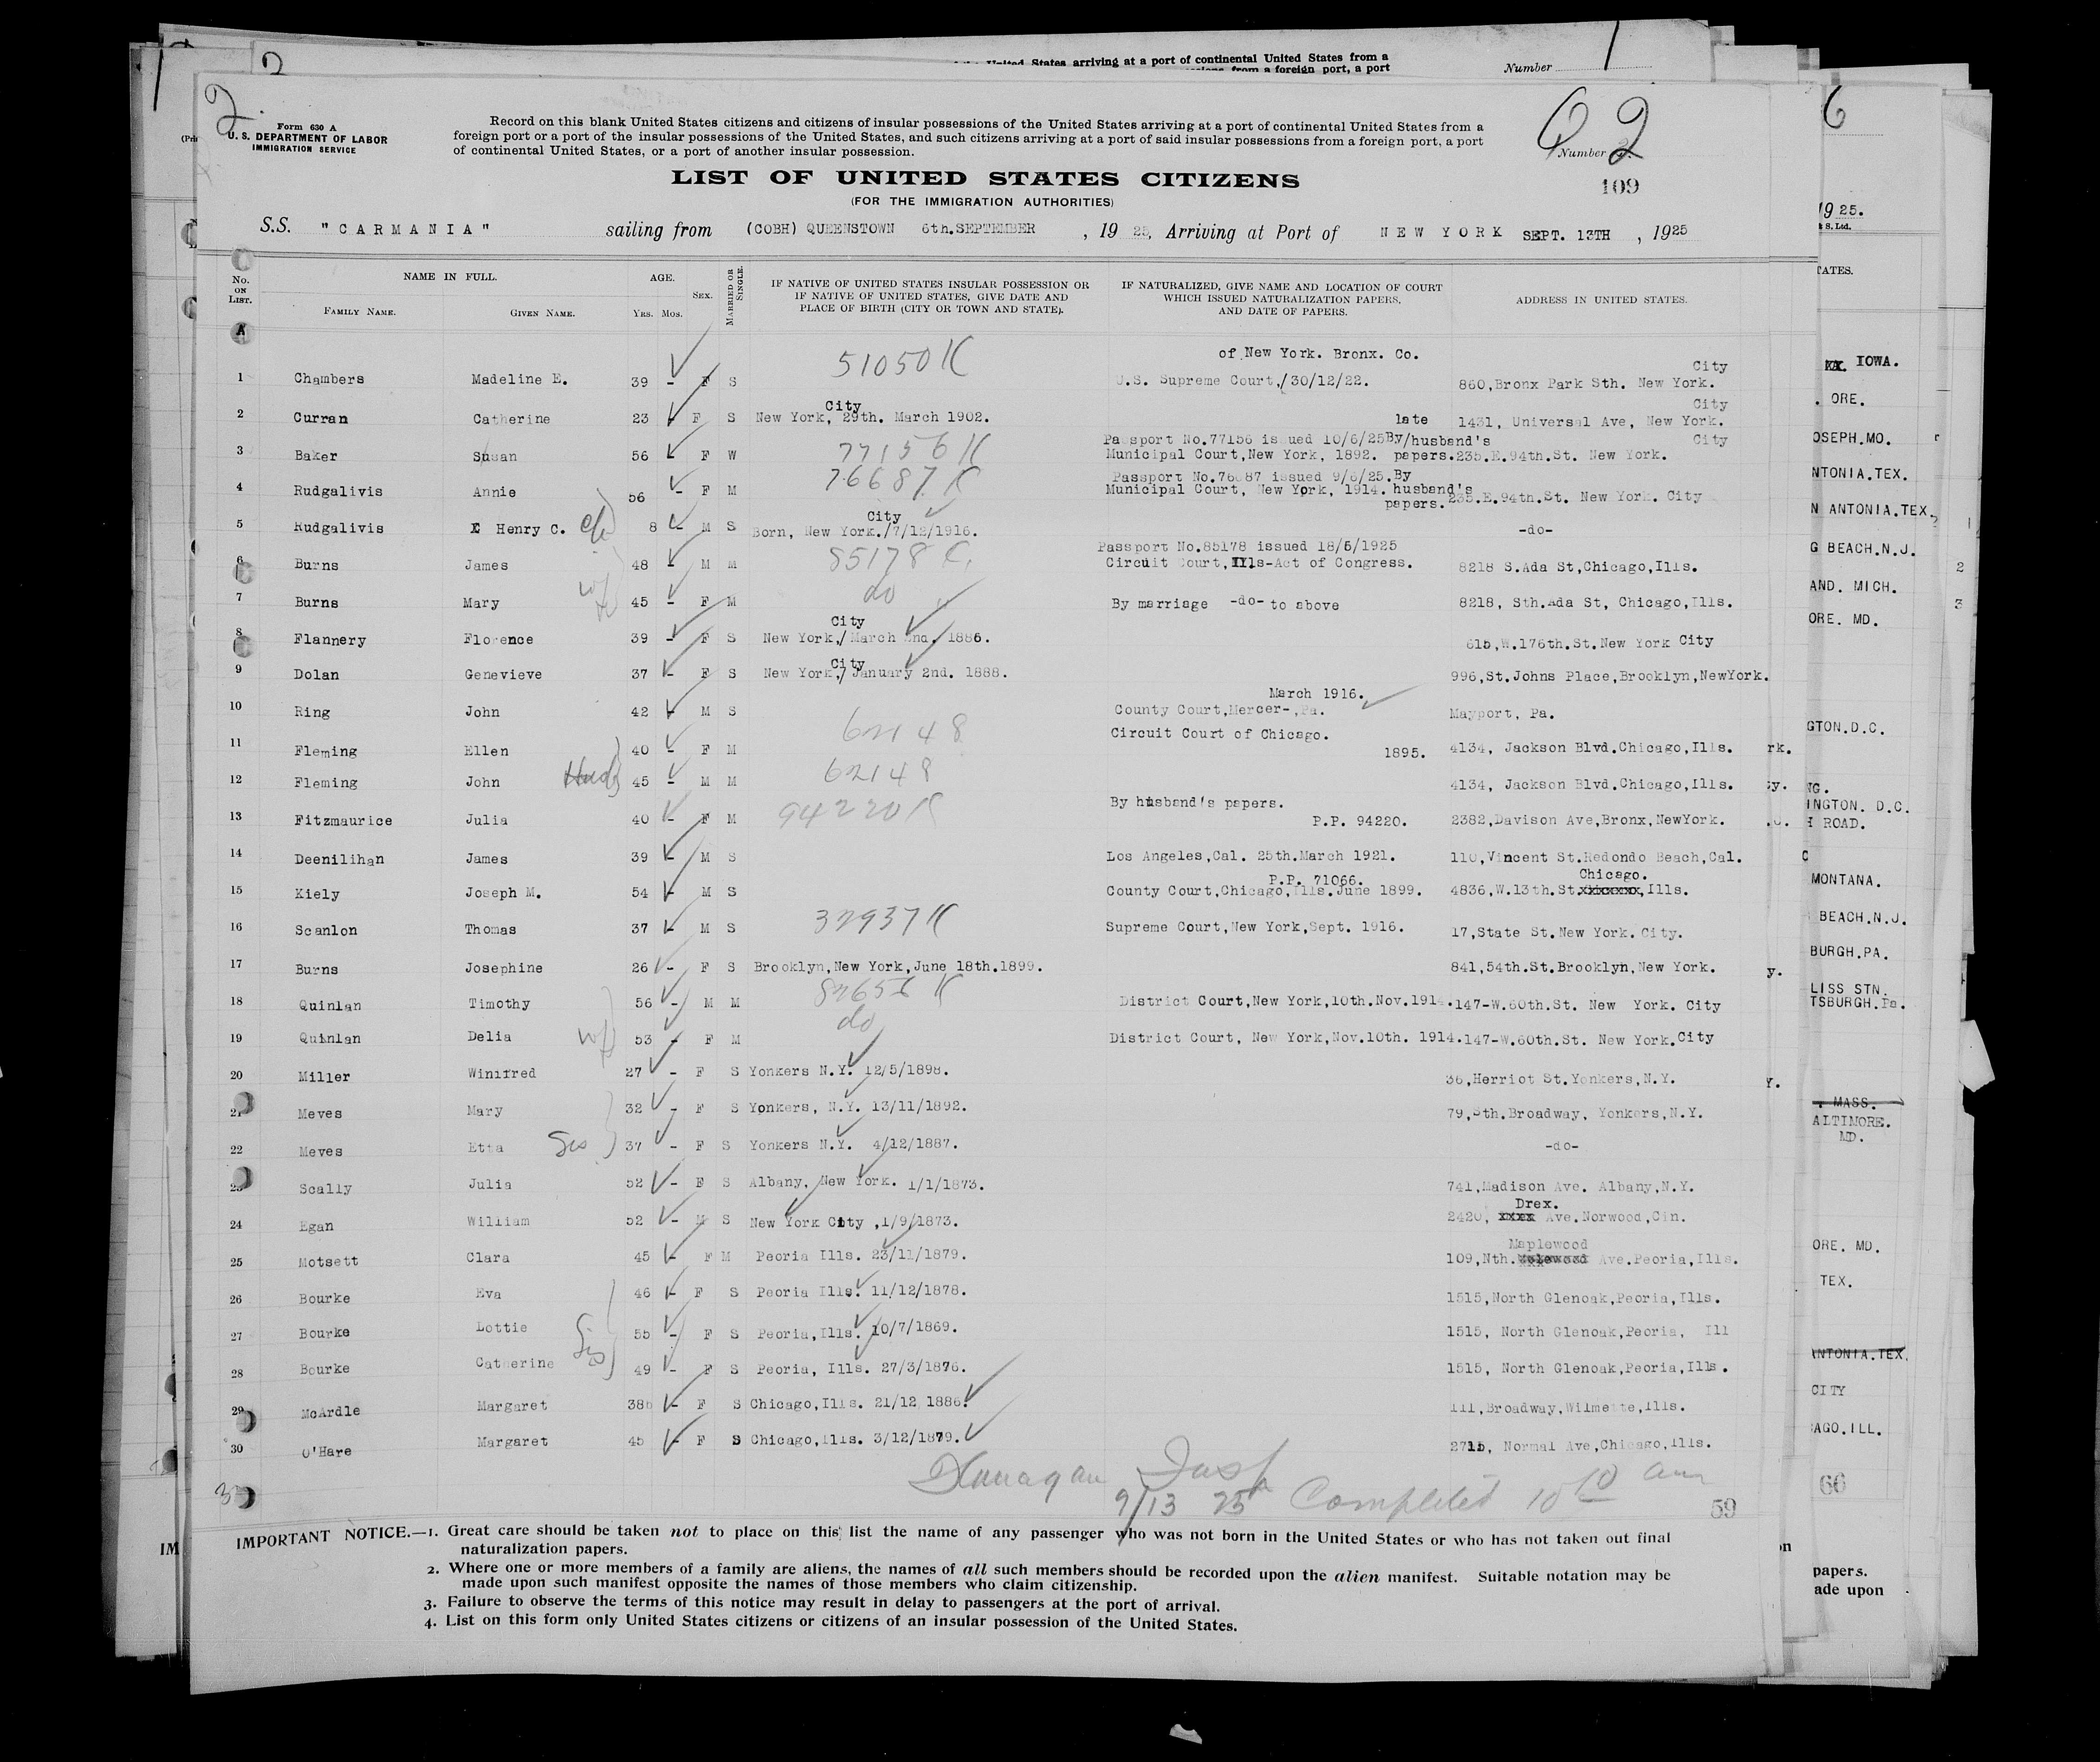 United States arriving at a port of continental United States from a
from a foreign port, a port
Number 1
2
2.
6
Form 630 A
U. S. DEPARTMENT OF LABOR
IMMIGRATION SERVICE
Record on this blank United States citizens and citizens of insular possessions of the United States arriving at a port of continental United States from a
foreign port or a port of the insular possessions of the United States, and such citizens arriving at a port of said insular possessions from a foreign port, a port
of continental United States, or a port of another insular possession.
Number 2
109
LIST OF UNITED STATES CITIZENS
(FOR THE IMMIGRATION AUTHORITIES)
S.S. "CARMANIA" sailing from (COBH) QUEENSTOWN 6th.SEPTEMBER, 1925, Arriving at Port of NEW YORK SEPT. 13TH, 1925
No. ON LIST. NAME IN FULL. AGE. SEX. MARRIED OR SINGLE. IF NATIVE OF UNITED STATES INSULAR POSSESSION OR IF NATIVE OF UNITED STATES, GIVE DATE AND PLACE OF BIRTH (CITY OR TOWN AND STATE). IF NATURALIZED, GIVE NAME AND LOCATION OF COURT WHICH ISSUED NATURALIZATION PAPERS, AND DATE OF PAPERS. ADDRESS IN UNITED STATES.
FAMILY NAME. GIVEN NAME. YRS. MOS.
of New York. Bronx. Co. City
1 Chambers Madeline E. 39 - F S 51050 K U.S. Supreme Court,/30/12/22. 860,Bronx Park Sth. New York.
City City
2 Curran Catherine 23 - F S New York, 29th. March 1902. 1431, Universal Ave, New York.
late
Passport No.77156 issued 10/6/25By/husband's City
3 Baker Susan 56 - F W 77156 K Municipal Court,New York, 1892. papers.235.E.94th.St. New York.
Passport No.76687 issued 9/6/25.By
4 Rudgalivis Annie 56 - F M 76687 K Municipal Court, New York, 1914. husband's papers. 235.E.94th.St. New York. City
City
5 Rudgalivis Henry C. 8 - M S Born, New York./7/12/1916. -do-
Passport No.85178 issued 18/5/1925
6 Burns James 48 - M M 85178 C. Circuit Court,Ills-Act of Congress. 8218 S.Ada St,Chicago,Ills.
7 Burns Mary wf 45 - F M do By marriage -do- to above 8218, Sth.Ada St, Chicago,Ills.
City
8 Flannery Florence 39 - F S New York,/March 2nd, 1886. 615,W.176th.St.New York City
City
9 Dolan Genevieve 37 - F S New York,/January 2nd. 1888. 996,St.Johns Place,Brooklyn,NewYork.
March 1916.
10 Ring John 42 - M S County Court,Mercer-,Pa. Mayport, Pa.
Circuit Court of Chicago.
11 Fleming Ellen 40 - F M 62148 1895. 4134, Jackson Blvd.Chicago,Ills.
12 Fleming John Husb 45 - M M 62148 4134, Jackson Blvd.Chicago,Ills.
By husband's papers.
13 Fitzmaurice Julia 40 - F M 94220 K P.P. 94220. 2382,Davison Ave,Bronx,NewYork.
14 Deenilihan James 39 - M S Los Angeles,Cal. 25th.March 1921. 110,Vincent St.Redondo Beach,Cal.
P.P. 71066. Chicago.
15 Kiely Joseph M. 54 - M S County Court,Chicago,Ills.June 1899. 4836,W.13th.St.xxxxxxx,Ills.
16 Scanlon Thomas 37 - M S 32937 K Supreme Court,New York,Sept. 1916. 17,State St.New York. City.
17 Burns Josephine 26 - F S Brooklyn,New York,June 18th.1899. 841,54th.St.Brooklyn,New York.
18 Quinlan Timothy 56 - M M District Court,New York,10th.Nov.1914. 147-W.60th.St. New York. City
19 Quinlan Delia wf 53 - F M do District Court, New York,Nov.10th. 1914. 147-W.60th.St. New York.City
20 Miller Winifred 27 - F S Yonkers N.Y. 12/5/1898. 36,Herriot St.Yonkers,N.Y.
21 Meves Mary 32 - F S Yonkers, N.Y. 13/11/1892. 79,Sth.Broadway, Yonkers,N.Y.
22 Meves Etta Sis 37 - F S Yonkers N.Y. 4/12/1887. -do-
23 Scally Julia 52 - F S Albany, New York. 1/1/1873. 741,Madison Ave. Albany,N.Y.
Drex.
24 Egan William 52 - M S New York City ,1/9/1873. 2420, xxxx Ave.Norwood,Cin.
Maplewood
25 Motsett Clara 45 - F M Peoria Ills. 23/11/1879. 109,Nth. Ave.Peoria,Ills.
26 Bourke Eva 46 - F S Peoria Ills. 11/12/1878. 1515,North Glenoak,Peoria,Ills.
27 Bourke Lottie Sis 55 - F S Peoria,Ills. 10/7/1869. 1515, North Glenoak,Peoria, Ill
28 Bourke Catherine 49 - F S Peoria, Ills. 27/3/1876. 1515, North Glenoak,Peoria,Ills.
29 McArdle Margaret 38 - F S Chicago,Ills. 21/12 1886. 111,Broadway,Wilmette,Ills.
30 O'Hare Margaret 45 - F S Chicago,Ills. 3/12/1879. 2715, Normal Ave,Chicago,Ills.
Flanagan Insp
9/13 25 Completed 10 10 am
59
IMPORTANT NOTICE.—1. Great care should be taken not to place on this list the name of any passenger who was not born in the United States or who has not taken out final
naturalization papers.
2. Where one or more members of a family are aliens, the names of all such members should be recorded upon the alien manifest. Suitable notation may be
made upon such manifest opposite the names of those members who claim citizenship.
3. Failure to observe the terms of this notice may result in delay to passengers at the port of arrival.
4. List on this form only United States citizens or citizens of an insular possession of the United States.
1925.
& S. Ltd.
IOWA.
ORE.
OSEPH.MO.
NTONIA.TEX.
N ANTONIA.TEX.
G BEACH.N.J.
AND. MICH.
ORE. MD.
GTON.D.C.
INGTON. D.C.
ROAD.
MONTANA.
BEACH.N.J.
BURGH.PA.
LISS STN.
TSBURGH.Pa.
MASS.
ALTIMORE.
MD.
ORE. MD.
TEX.
ANTONIA.TEX.
CITY
AGO.ILL.
66
papers.
ade upon